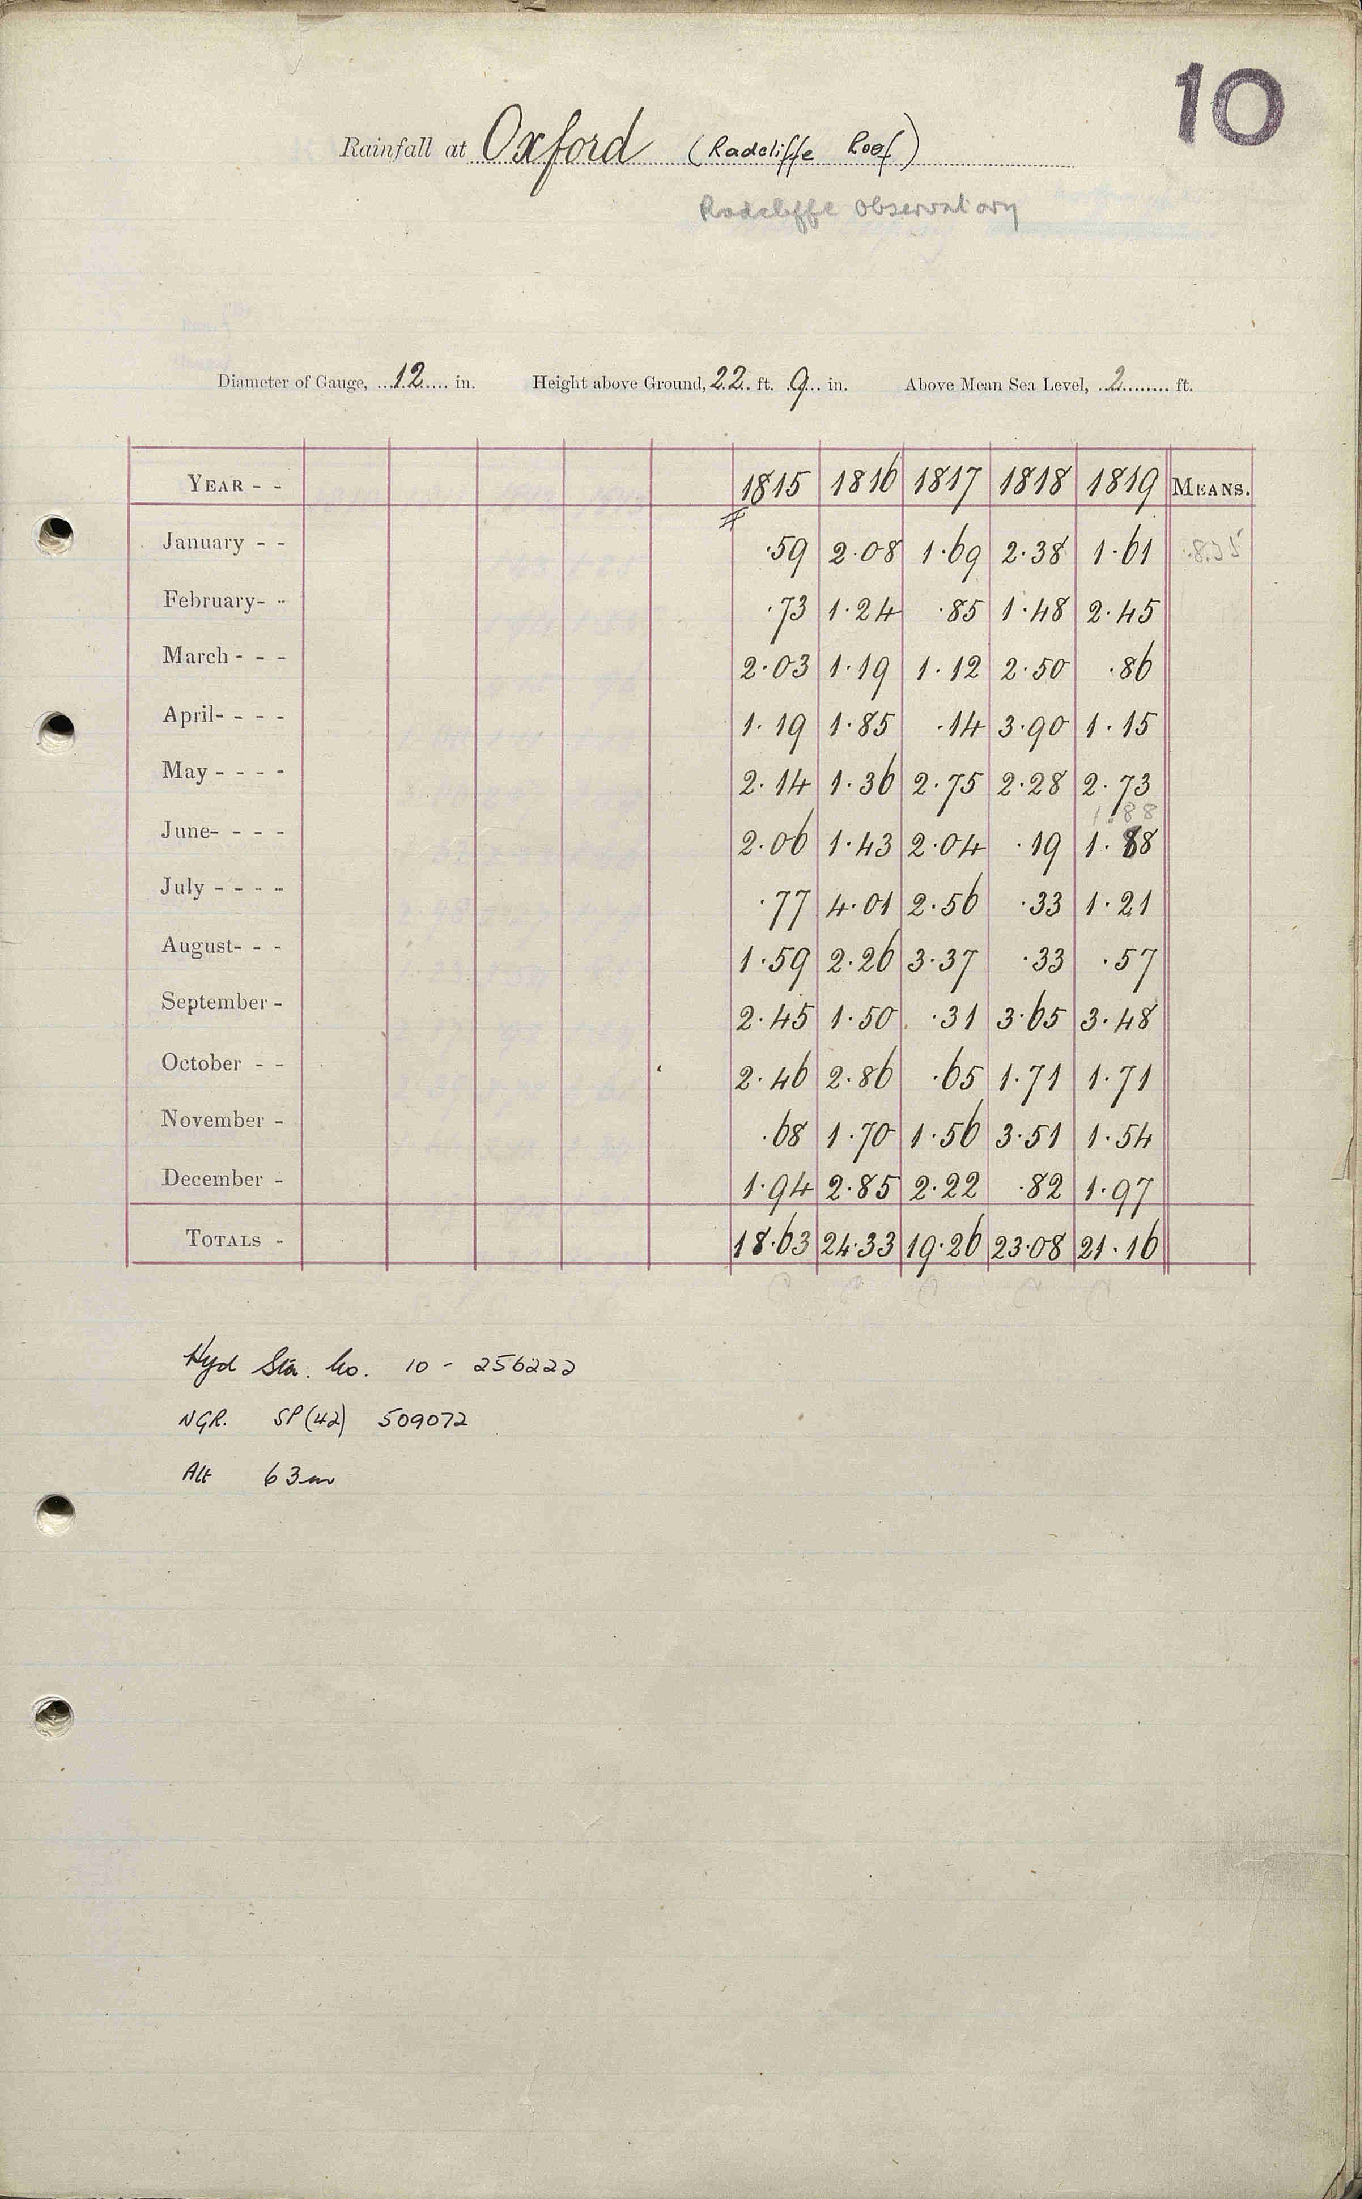 10
Rainfall at Oxford (Radcliffe Roof)
Radcliffe Observatory
Diameter of Gauge, 12 in. Height above Ground, 22 ft. 9 in. Above Mean Sea Level, 2 ft.
YEAR - - 1815 1816 1817 1818 1819 MEANS.
January - - ·59 2·08 1·69 2·38 1·61
February- - ·73 1·24 ·85 1·48 2·45
March - - - 2·03 1·19 1·12 2·50 ·86
April- - - - 1·19 1·85 ·14 3·90 1·15
May - - - - 2·14 1·36 2·75 2·28 2·73
1·88
June- - - - 2·06 1·43 2·04 ·19 1·88
July - - - - ·77 4·01 2·56 ·33 1·21
August- - - 1·59 2·26 3·37 ·33 ·57
September - 2·45 1·50 ·31 3·65 3·48
October - - 2·46 2·86 ·65 1·71 1·71
November - ·68 1·70 1·56 3·51 1·54
December - 1·94 2·85 2·22 ·82 1·97
TOTALS - 18·63 24·33 19·26 23·08 21·16
Hyd Sta. No. 10 - 256222
NGR. SP(42) 509072
Alt 63m